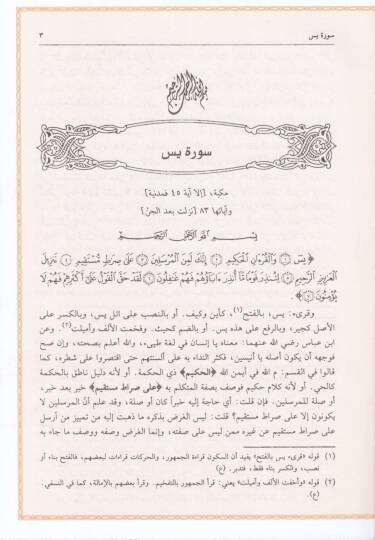 سورة يس
٣
بسم الله الرحمن الرحيم
سورة يس
مكية، [إلا آية ٤٥ فمدنية]
وآياتها ٨٣ [نزلت بعد الجن]
بِسْمِ اللَّهِ الرَّحْمَنِ الرَّحِيمِ
﴿يسٓ ﴿١﴾ وَالْقُرْءَانِ الْحَكِيمِ ﴿٢﴾ إِنَّكَ لَمِنَ الْمُرْسَلِينَ ﴿٣﴾ عَلَى صِرَاطٍ مُّسْتَقِيمٍ ﴿٤﴾ تَنزِيلَ
الْعَزِيزِ الرَّحِيمِ ﴿٥﴾ لِتُنذِرَ قَوْمًا مَّا أُنذِرَ ءَابَاؤُهُمْ فَهُمْ غَافِلُونَ ﴿٦﴾ لَقَدْ حَقَّ الْقَوْلُ عَلَى أَكْثَرِهِمْ فَهُمْ لَا
يُؤْمِنُونَ ﴿٧﴾﴾.
وقرىء: يس، بالفتح(١)، كأين وكيف. أو بالنصب على اتل يس، وبالكسر على
الأصل كجير، وبالرفع على هذه يس. أو بالضم كحيث. وفخمت الألف وأميلت(٢). وعن
ابن عباس رضي الله عنهما: معناه يا إنسان في لغة طيىء، والله أعلم بصحته، وإن صح
فوجهه أن يكون أصله يا أنيسين، فكثر النداء به على ألسنتهم حتى اقتصروا على شطره، كما
قالوا في القسم: م الله في أيمن الله ﴿الحكيم﴾ ذي الحكمة. أو لأنه دليل ناطق بالحكمة
كالحي. أو لأنه كلام حكيم فوصف بصفة المتكلم به ﴿على صراط مستقيم﴾ خبر بعد خبر،
أو صلة للمرسلين. فإن قلت: أي حاجة إليه خبراً كان أو صلة، وقد علم أنّ المرسلين لا
يكونون إلا على صراط مستقيم؟ قلت: ليس الغرض بذكره ما ذهبت إليه من تمييز من أرسل
على صراط مستقيم عن غيره ممن ليس على صفته، وإنما الغرض وصفه ووصف ما جاء به
(١) قوله «قرىء يس بالفتح» يفيد أن السكون قراءة الجمهور، والحركات قراءات لبعضهم، فالفتح بناء أو
نصب، والكسر بناء فقط، فتدبر. (ع)
(٢) قوله «وأخفت الألف وأميلت» يعني: قرأ الجمهور بالتفخيم. وقرأ بعضهم بالإمالة، كما في النسفي.
(ع).